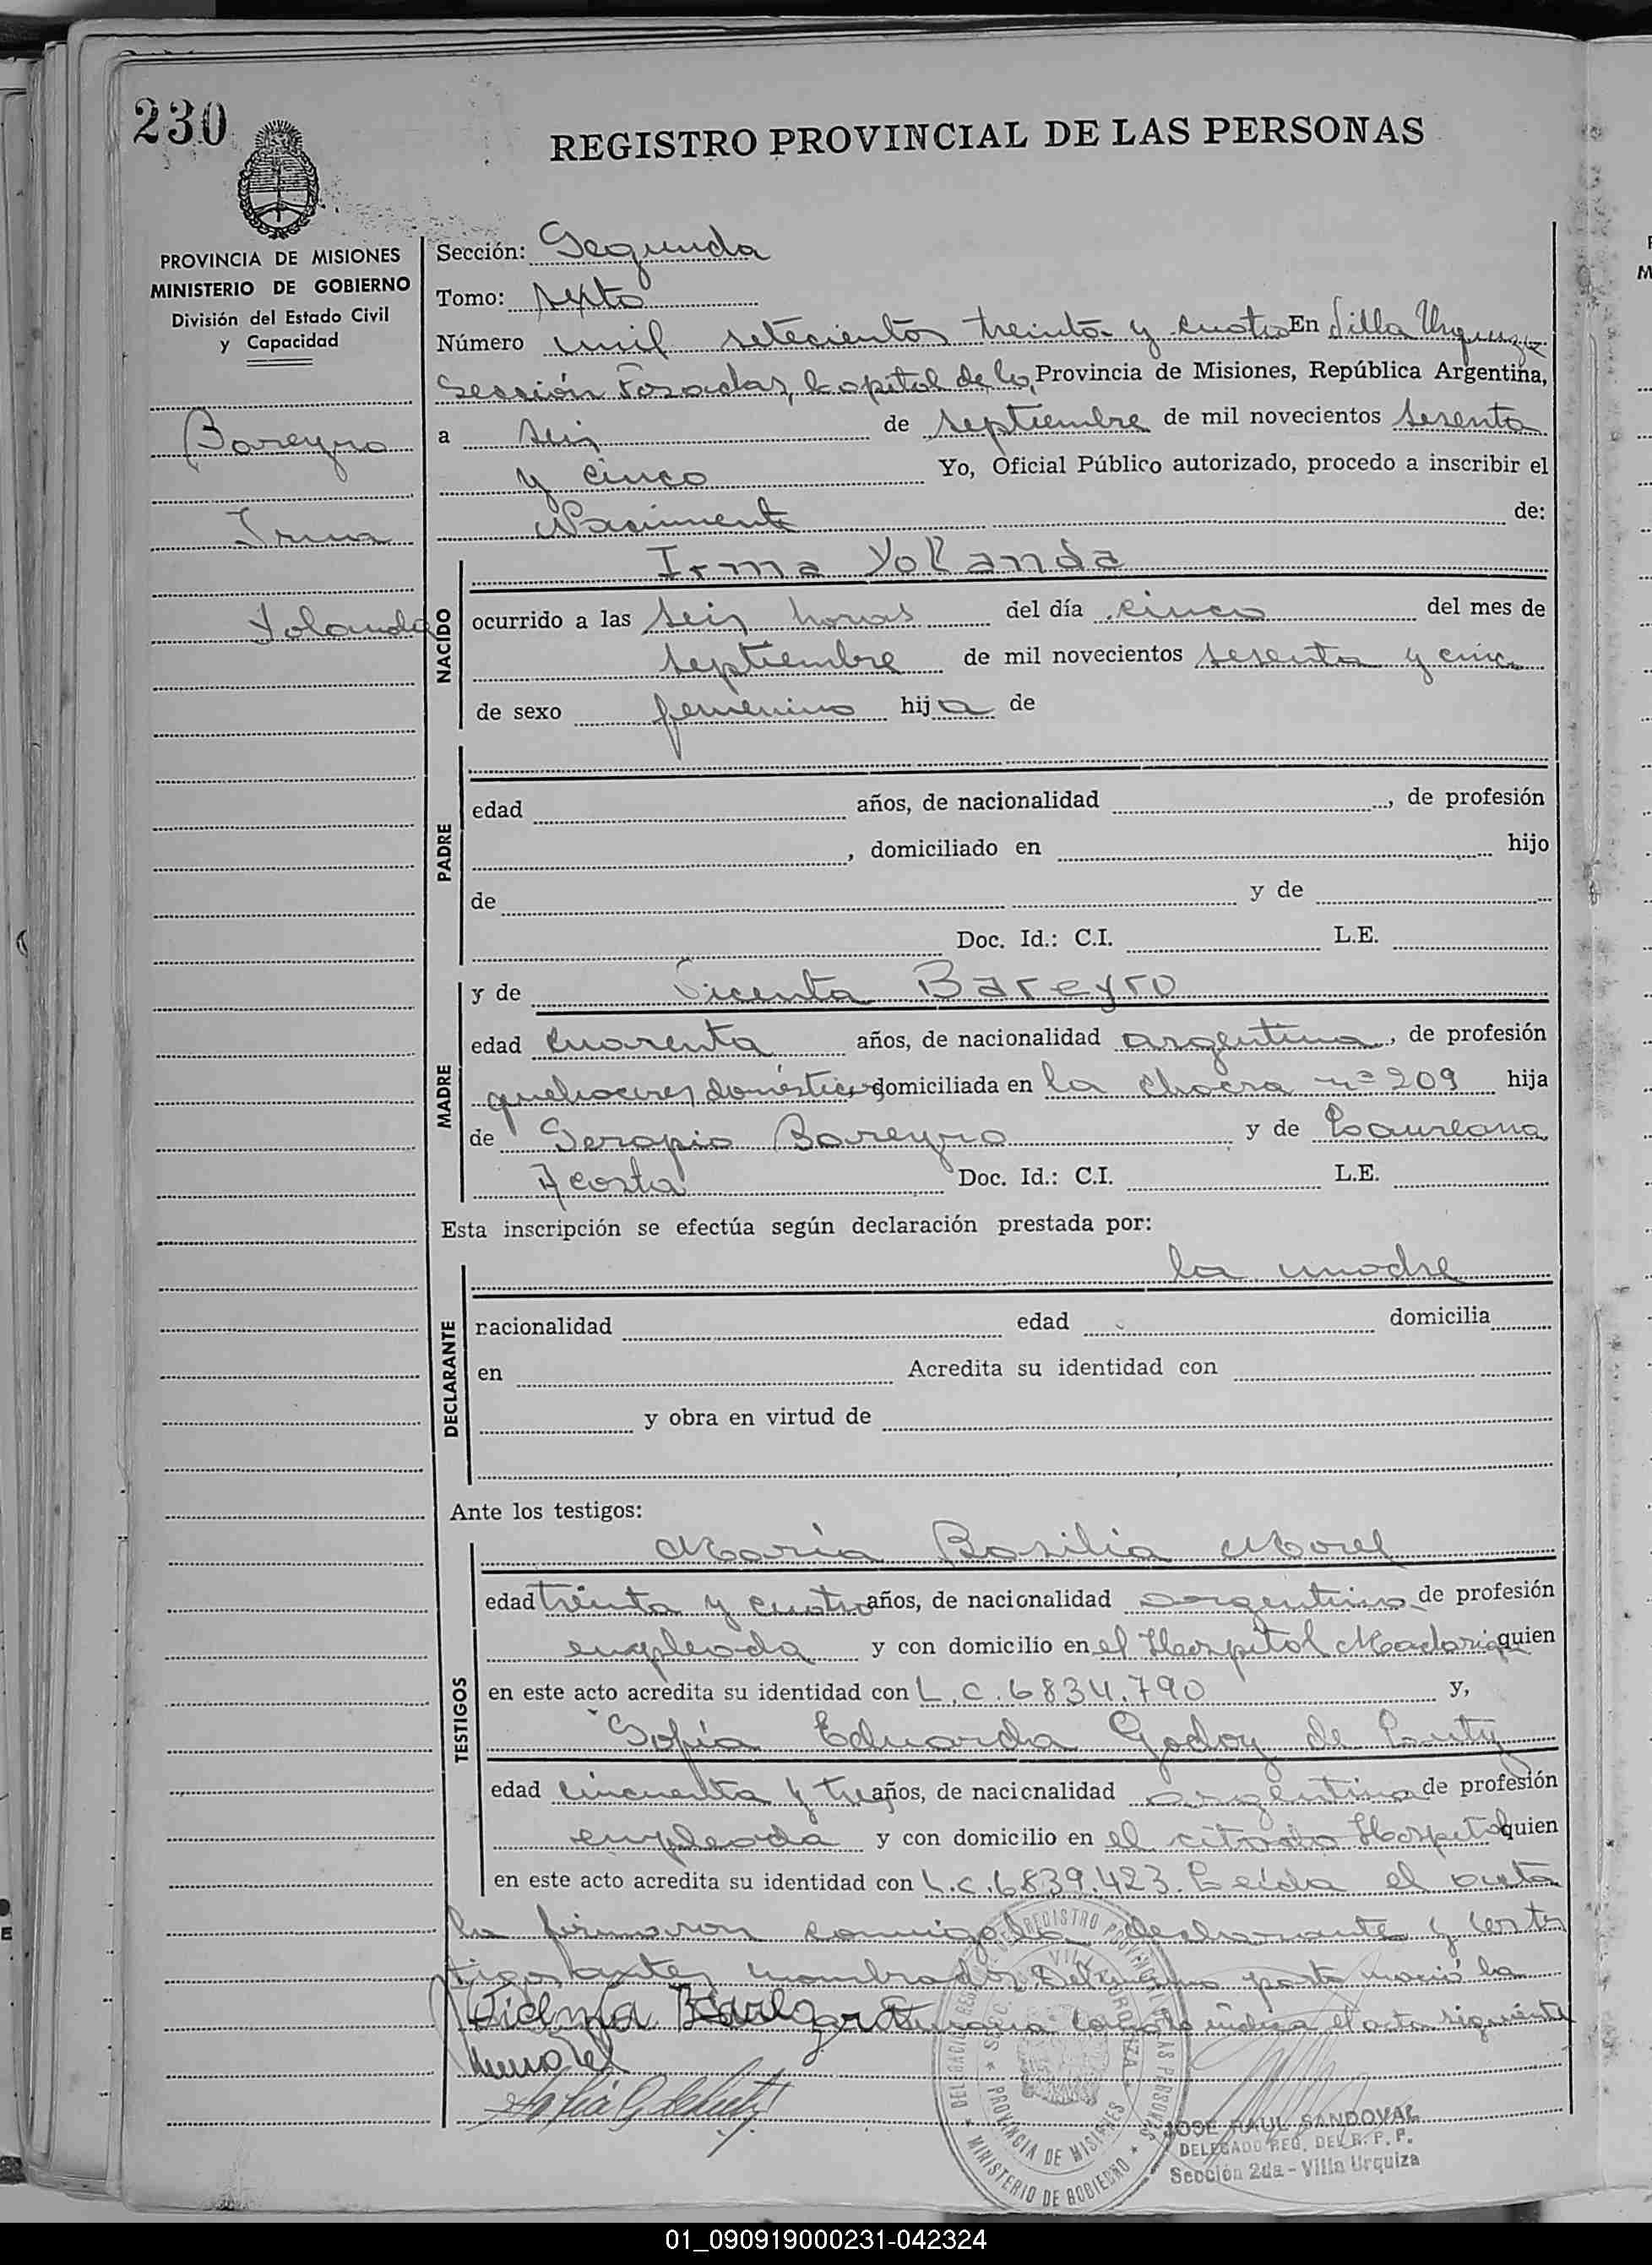 230
REGISTRO PROVINCIAL DE LAS PERSONAS
PROVINCIA DE MISIONES
MINISTERIO DE GOBIERNO
División del Estado Civil
y Capacidad
Bareyro
Irma
Yolanda
Sección: Segunda
Tomo: sexto
Número mil setecientos treinta y cuatro En Villa Urquiza
Sección Posadas, Capital de la, Provincia de Misiones, República Argentina,
a seis de septiembre de mil novecientos sesenta
y cinco Yo, Oficial Público autorizado, procedo a inscribir el
Nacimiento de:
NACIDO
Irma Yolanda
ocurrido a las seis horas del día cinco del mes de
septiembre de mil novecientos sesenta y cinco
de sexo femenino hija de
PADRE
edad años, de nacionalidad , de profesión
, domiciliado en hijo
de y de
Doc. Id.: C.I. L.E.
MADRE
y de Vicenta Bareyro
edad cuarenta años, de nacionalidad argentina, de profesión
quehaceres domésticos domiciliada en la chacra nº 209 hija
de Serapio Bareyro y de Laureana
Acosta Doc. Id.: C.I. L.E.
Esta inscripción se efectúa según declaración prestada por:
la madre
DECLARANTE
nacionalidad edad domicilia
en Acredita su identidad con
y obra en virtud de
Ante los testigos:
TESTIGOS
María Basilia Morel
edad treinta y cuatro años, de nacionalidad argentina de profesión
empleada y con domicilio en el Hospital Madariaga quien
en este acto acredita su identidad con L.C. 6834.790 y,
Sofía Eduarda Godoy de
edad cincuenta y tres años, de nacionalidad argentina de profesión
empleada y con domicilio en el citado Hospital quien
en este acto acredita su identidad con L.C. 6839.423. Leída el acta
la firmaron conmigo la declarante y los tes
tigos antes nombrados. Del mismo parto nació la
Vicenta Bareyro como lo indica el acta siguiente
Morel
Sofia G de
DELEGACION REGISTRO PROVINCIAL DE LAS PERSONAS
MINISTERIO DE GOBIERNO
VILLA URQUIZA
PROVINCIA DE MISIONES
JOSE RAUL SANDOVAL
DELEGADO REG. DEL R. P. P.
Sección 2da - Villa Urquiza
01_090919000231-042324